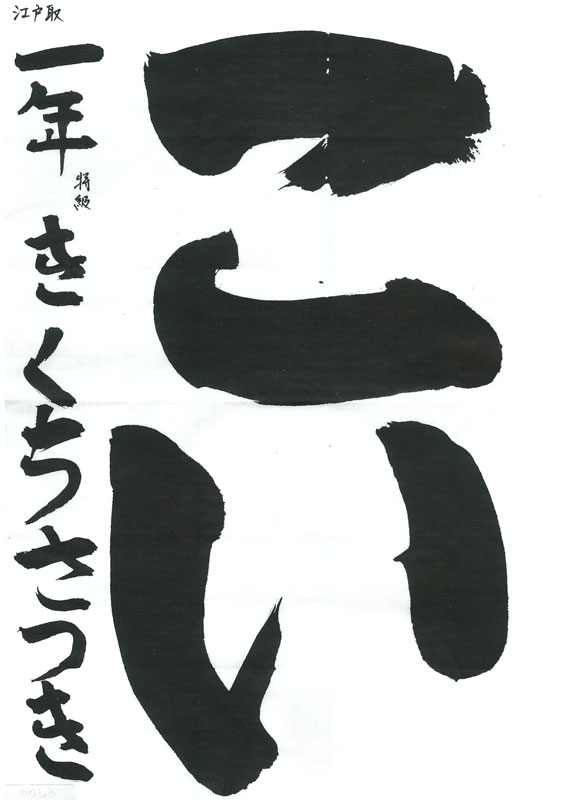 こい
江戸取
一年 きくちさつき
特級
のりしろ